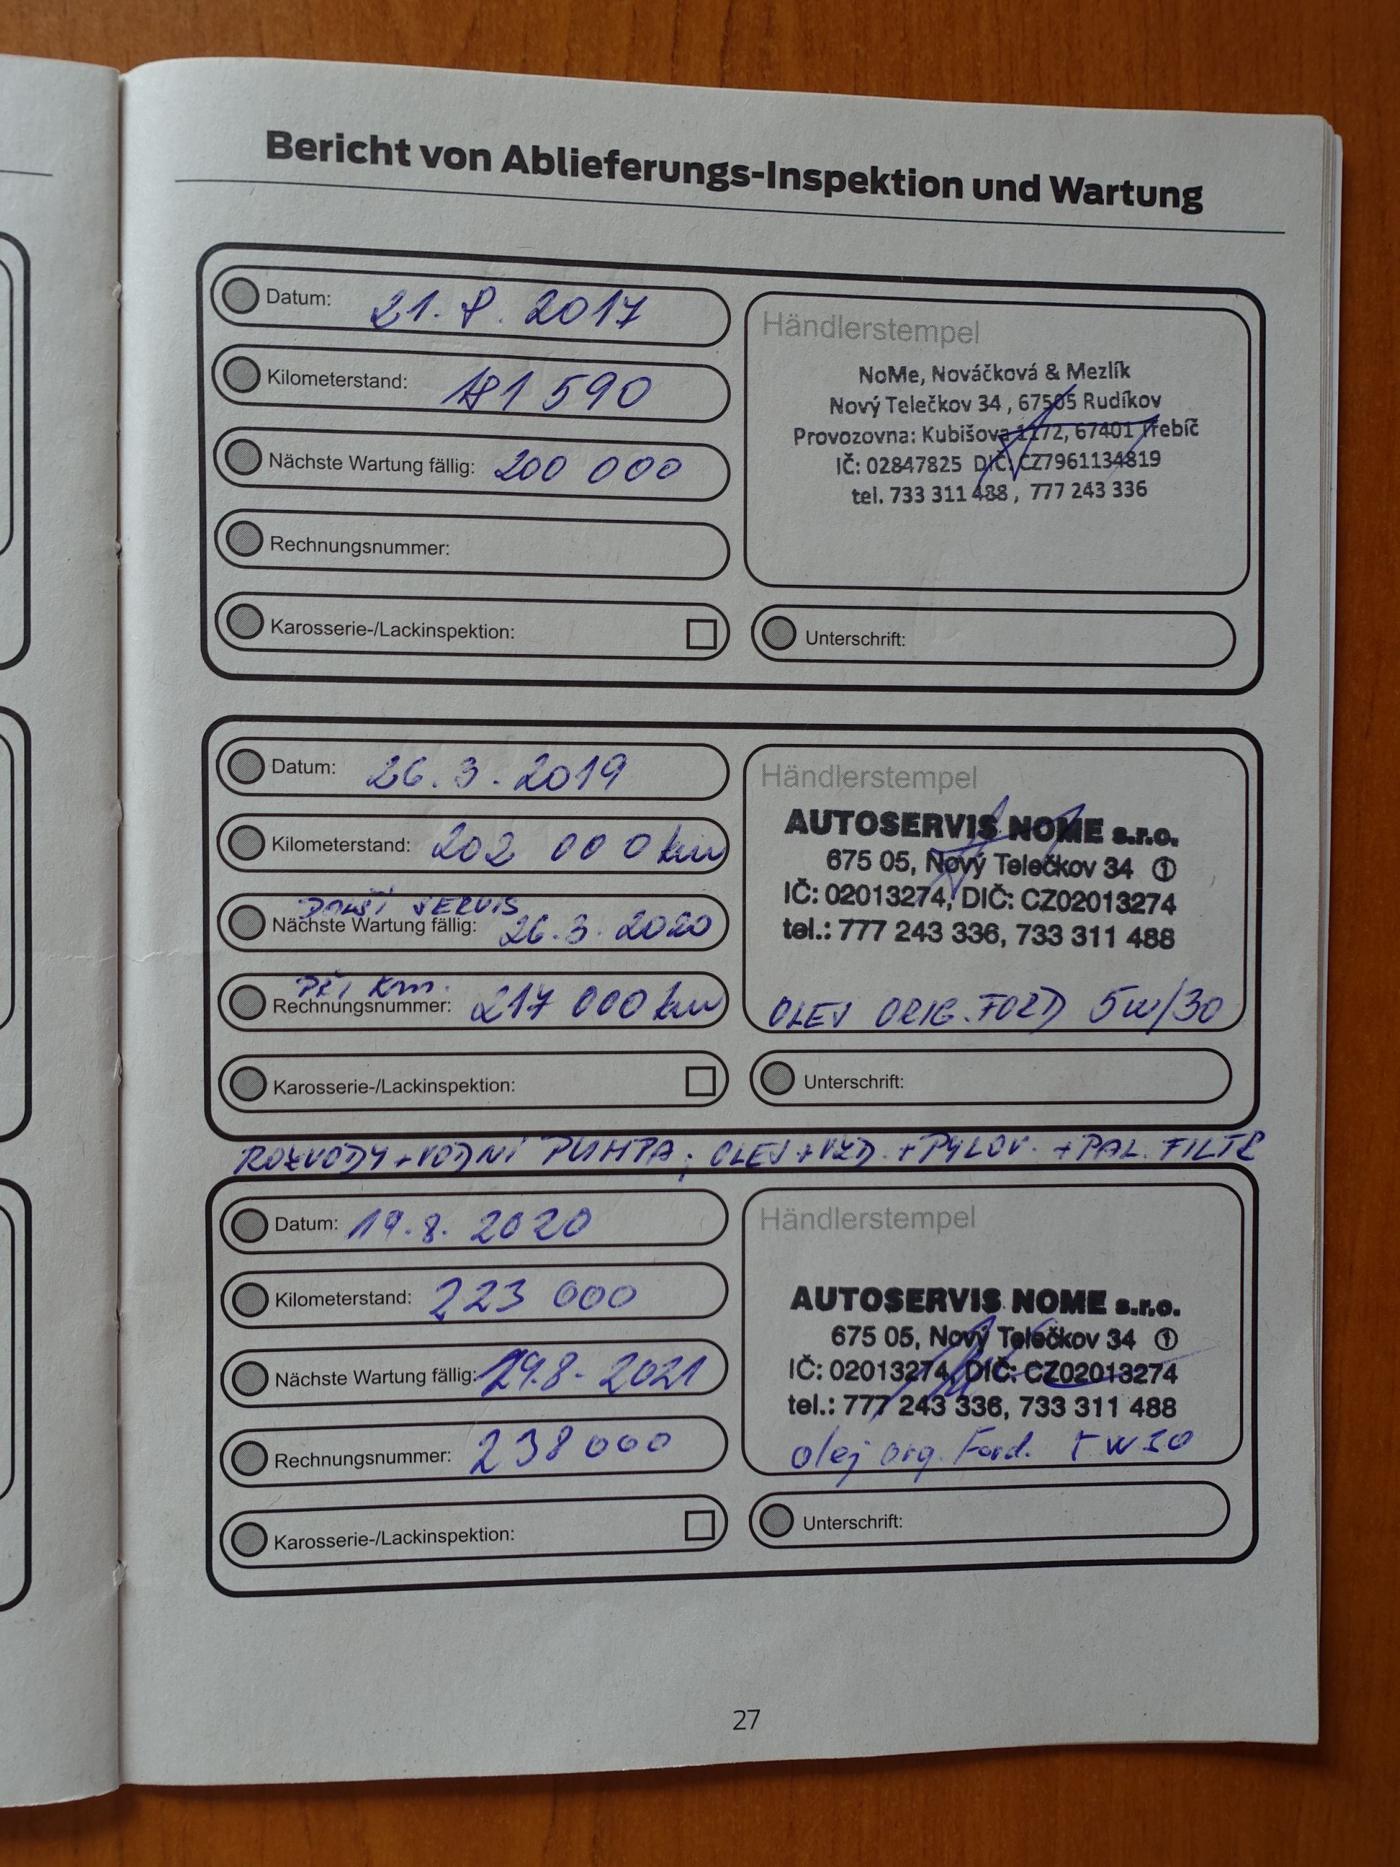 Bericht von Ablieferungs-Inspektion und Wartung
Datum: 21. 8. 2017
Kilometerstand: 181 590
Nächste Wartung fällig: 200 000
Rechnungsnummer:
Karosserie-/Lackinspektion:
Händlerstempel
NoMe, Nováčková & Mezlík
Nový Telečkov 34 , 67505 Rudíkov
Provozovna: Kubišova 1172, 67401 Třebíč
IČ: 02847825 DIČ: CZ7961134819
tel. 733 311 488 , 777 243 336
Unterschrift:
Datum: 26. 3. 2019
Kilometerstand: 202 000 km
DALŠÍ SERVIS
Nächste Wartung fällig: 26. 3. 2020
PŘI KM.
Rechnungsnummer: 217 000 km
Karosserie-/Lackinspektion:
Händlerstempel
AUTOSERVIS NOME s.r.o.
675 05, Nový Telečkov 34 ①
IČ: 02013274, DIČ: CZ02013274
tel.: 777 243 336, 733 311 488
OLEJ ORIG. FORD 5W/30
Unterschrift:
ROZVODY + VODNÍ PUMPA; OLEJ + VZD. + PYLOV. + PAL. FILTR
Datum: 19. 8. 2020
Kilometerstand: 223 000
Nächste Wartung fällig: 19.8. 2021
Rechnungsnummer: 238 000
Karosserie-/Lackinspektion:
Händlerstempel
AUTOSERVIS NOME s.r.o.
675 05, Nový Telečkov 34 ①
IČ: 02013274, DIČ: CZ02013274
tel.: 777 243 336, 733 311 488
olej org. Ford. 5W30
Unterschrift:
27